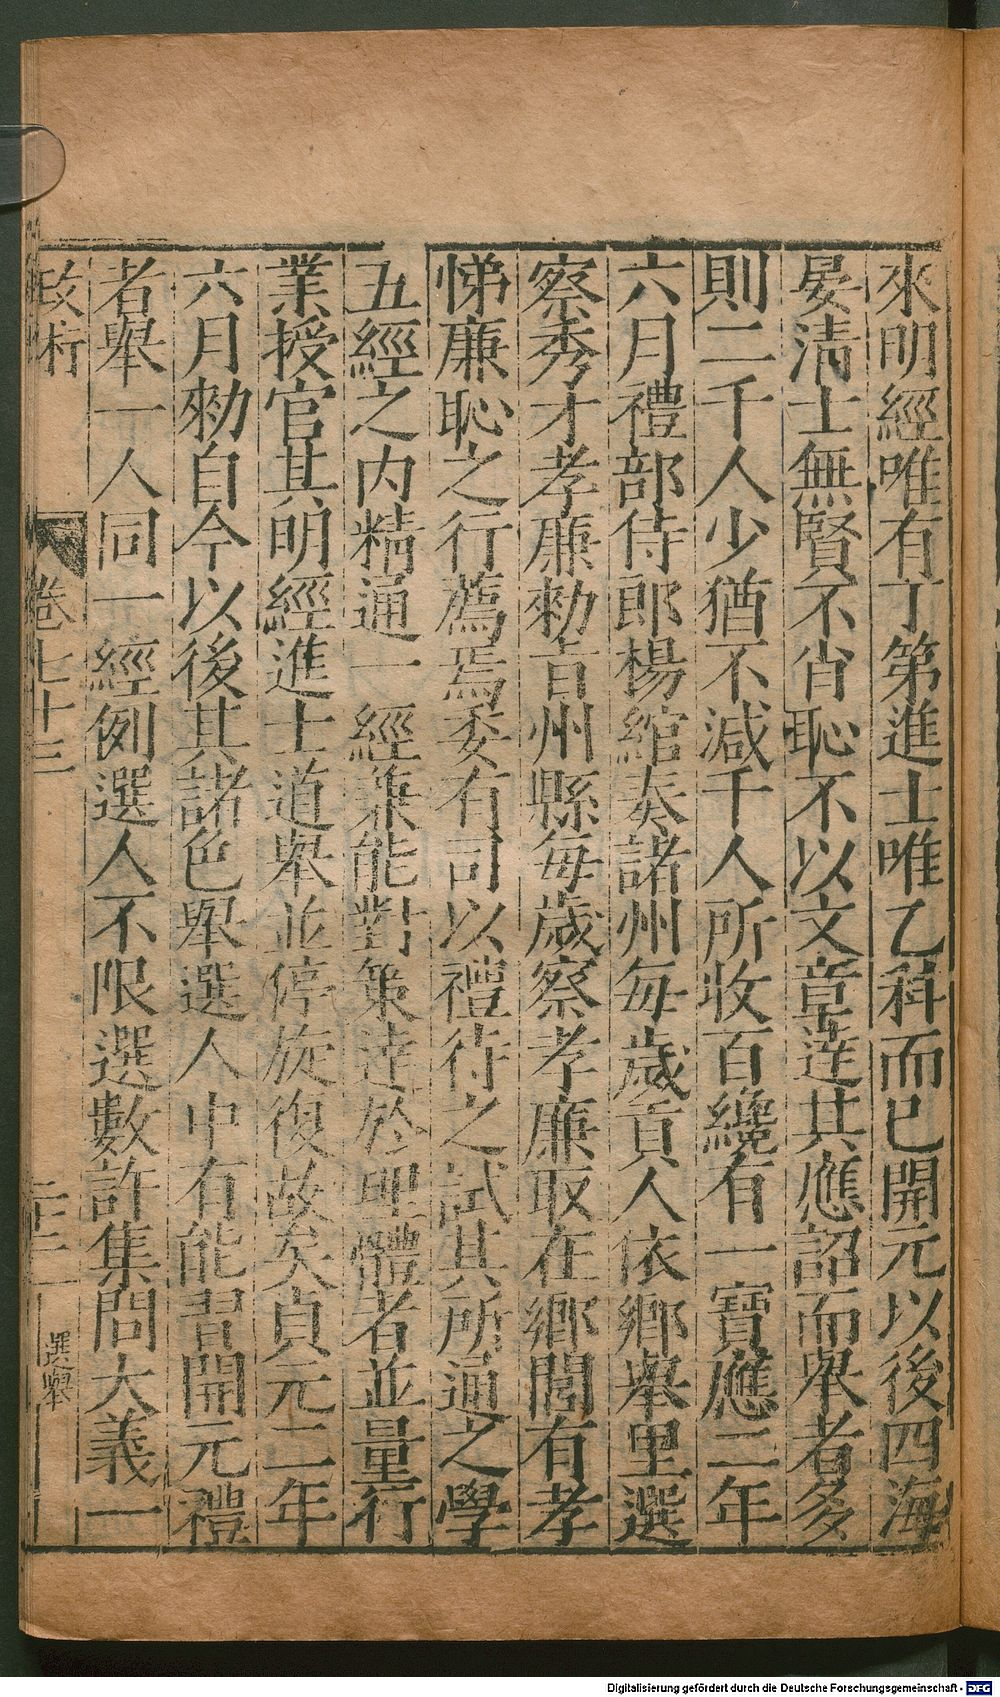 來明經唯有丁第進士唯乙科而已開元以後四海
晏清士無賢不肖恥不以文章達其應詔而舉者多
則二千人少猶不減千人所收百纔有一寶應二年
六月禮部侍郎楊綰奏諸州每歲貢人依鄉舉里選
察秀才孝廉勑旨州縣每歲察孝廉取在鄉閭有孝
悌廉恥之行薦焉委有司以禮待之試其所通之學
五經之內精通一經兼能對策達於理體者並量行
業授官其明經進士道舉並停旋復故矣貞元二年
六月勑自今以後其諸色舉選人中有能習開元禮
者舉一人同一經例選人不限選數許集問大義一
政術
卷七十三
二十三
選舉
Digitalisierung gefördert durch die Deutsche Forschungsgemeinschaft - DFG